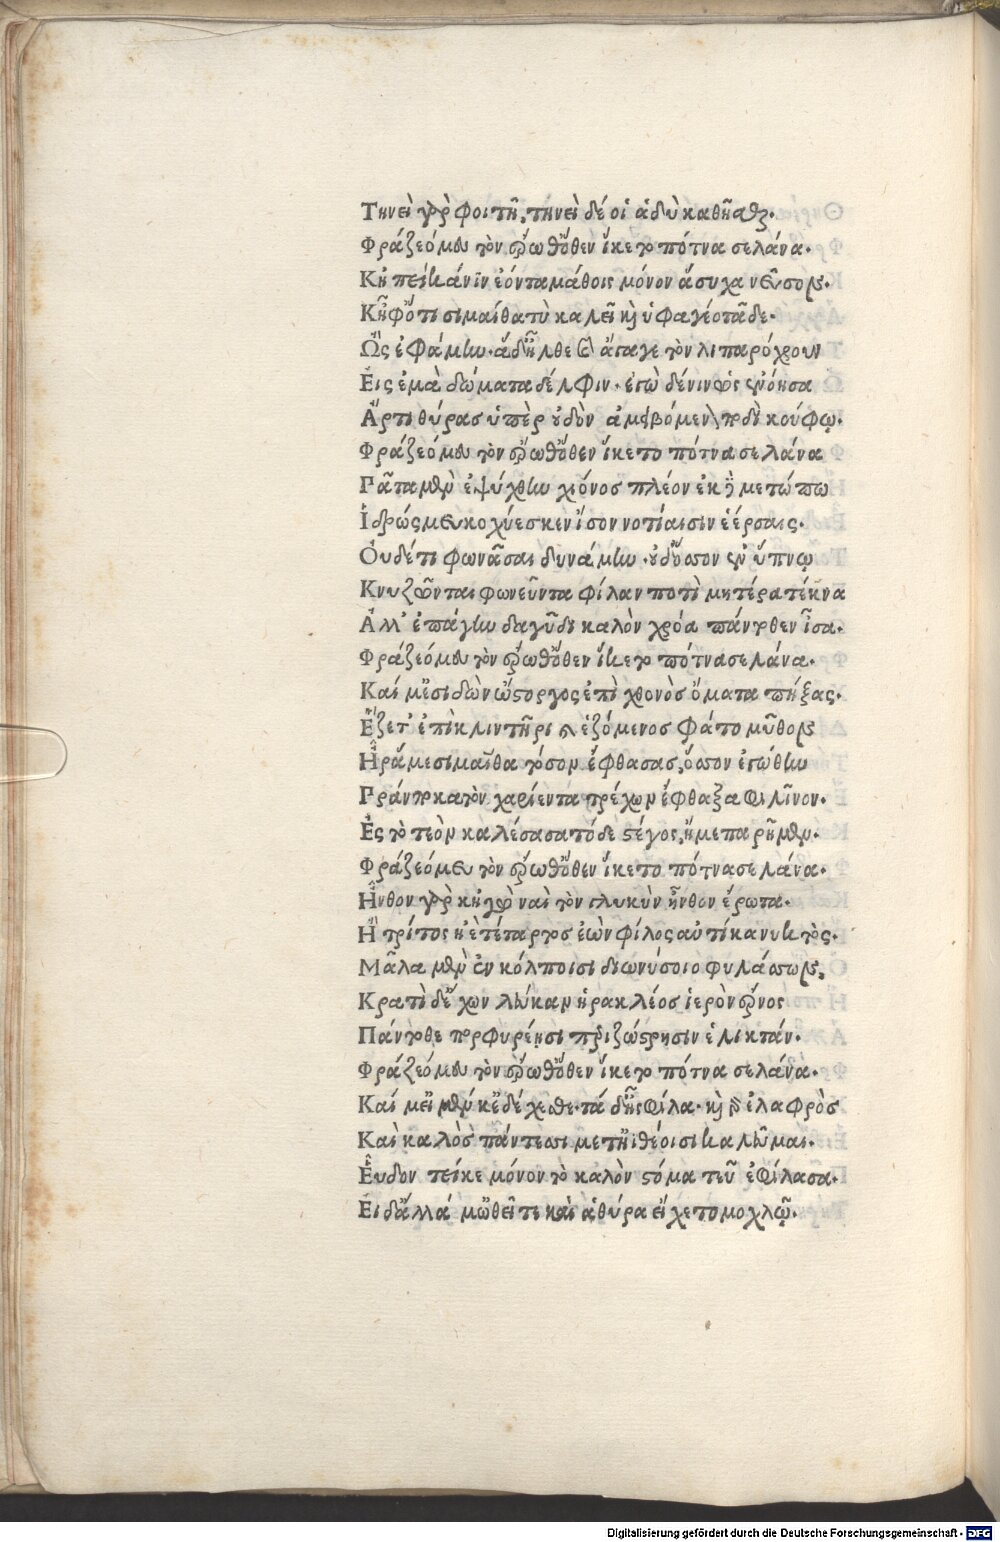 Τηνεὶ γὰρ φοιτῆ, τηνεὶ δέ οἱ ἁδὺ καθῆσθαι.
Φράζεό μευ τὸν ἔρωθ' ὅθεν ἵκετο πότνα σελάνα.
Κἠπεί κά νιν ἐόντα μάθοις μόνον ἅσυχα νεῦσον.
Κἦφ' ὅτι σιμαίθα τὺ καλεῖ καὶ ὑφαγέο τᾶδε.
Ὣς ἐφάμην. ἁ δ' ἦλθε καὶ ἄγαγε τὸν λιπαρόχρουν
Εἰς ἐμὰ δώματα δέλφιν. ἐγὼ δέ νιν ὡς ἐνόησα
Ἄρτι θύρας ὑπὲρ οὐδὸν ἀμειβόμενον ποδὶ κούφῳ.
Φράζεό μευ τὸν ἔρωθ' ὅθεν ἵκετο πότνα σελάνα
Πᾶσα μὲν ἐψύχθην χιόνος πλέον ἐκ δὲ μετώπω
Ἱδρώς μευ κοχύεσκεν ἴσον νοτίαισιν ἐέρσαις.
Οὐδέ τι φωνᾶσαι δυνάμην. οὐδ' ὅσσον ἐν ὕπνῳ
Κνυζῶνται φωνεῦντα φίλαν ποτὶ μητέρα τέκνα
Ἀλλ' ἐπάγην δαγῦδι καλὸν χρόα πάντοθεν ἶσα.
Φράζεό μευ τὸν ἔρωθ' ὅθεν ἵκετο πότνα σελάνα.
Καί μ' ἐσιδὼν ὥστοργος ἐπὶ χθονὸς ὄματα πήξας.
Ἕζετ' ἐπὶ κλιντῆρι καὶ ἑζόμενος φάτο μῦθον
Ἦρά με σιμαῖθα τόσον ἔφθασας, ὅσσον ἐγώ θην
Πράν ποκα τὸν χαρίεντα τρέχων ἔφθαξα φιλῖνον.
Ἐς τὸ τεὸν καλέσασα τόδε στέγος, ἤ με παρῆμεν.
Φράζεό μευ τὸν ἔρωθ' ὅθεν ἵκετο πότνα σελάνα.
Ἦνθον γὰρ κἠγὼ ναὶ τὸν γλυκὺν ἦνθον ἔρωτα.
Ἢ τρίτος ἠὲ τέταρτος ἐὼν φίλος αὐτίκα νυκτὸς.
Μᾶλα μὲν ἐν κόλποισι διωνύσοιο φυλάσσων,
Κρατὶ δ' ἔχων λεύκαν ἡρακλέος ἱερὸν ἔρνος
Πάντοθε πορφυρέησι περιζώστρησιν ἑλικτάν.
Φράζεό μευ τὸν ἔρωθ' ὅθεν ἵκετο πότνα σελάνα.
Καί μ' εἰ μέν κ' ἐδέχεσθε. τά δ' ἦς φίλα. καὶ γὰρ ἐλαφρὸς
Καὶ καλὸς πάντεσσι μετ' ἠϊθέοισι καλεῦμαι.
Εὗδον τ' εἴκε μόνον τὸ καλὸν στόμα τεῦ ἐφίλασα.
Εἰ δ' ἄλλα μ' ὠθεῖτε καὶ ἁ θύρα εἴχετο μοχλῷ.
Digitalisierung gefördert durch die Deutsche Forschungsgemeinschaft - DFG